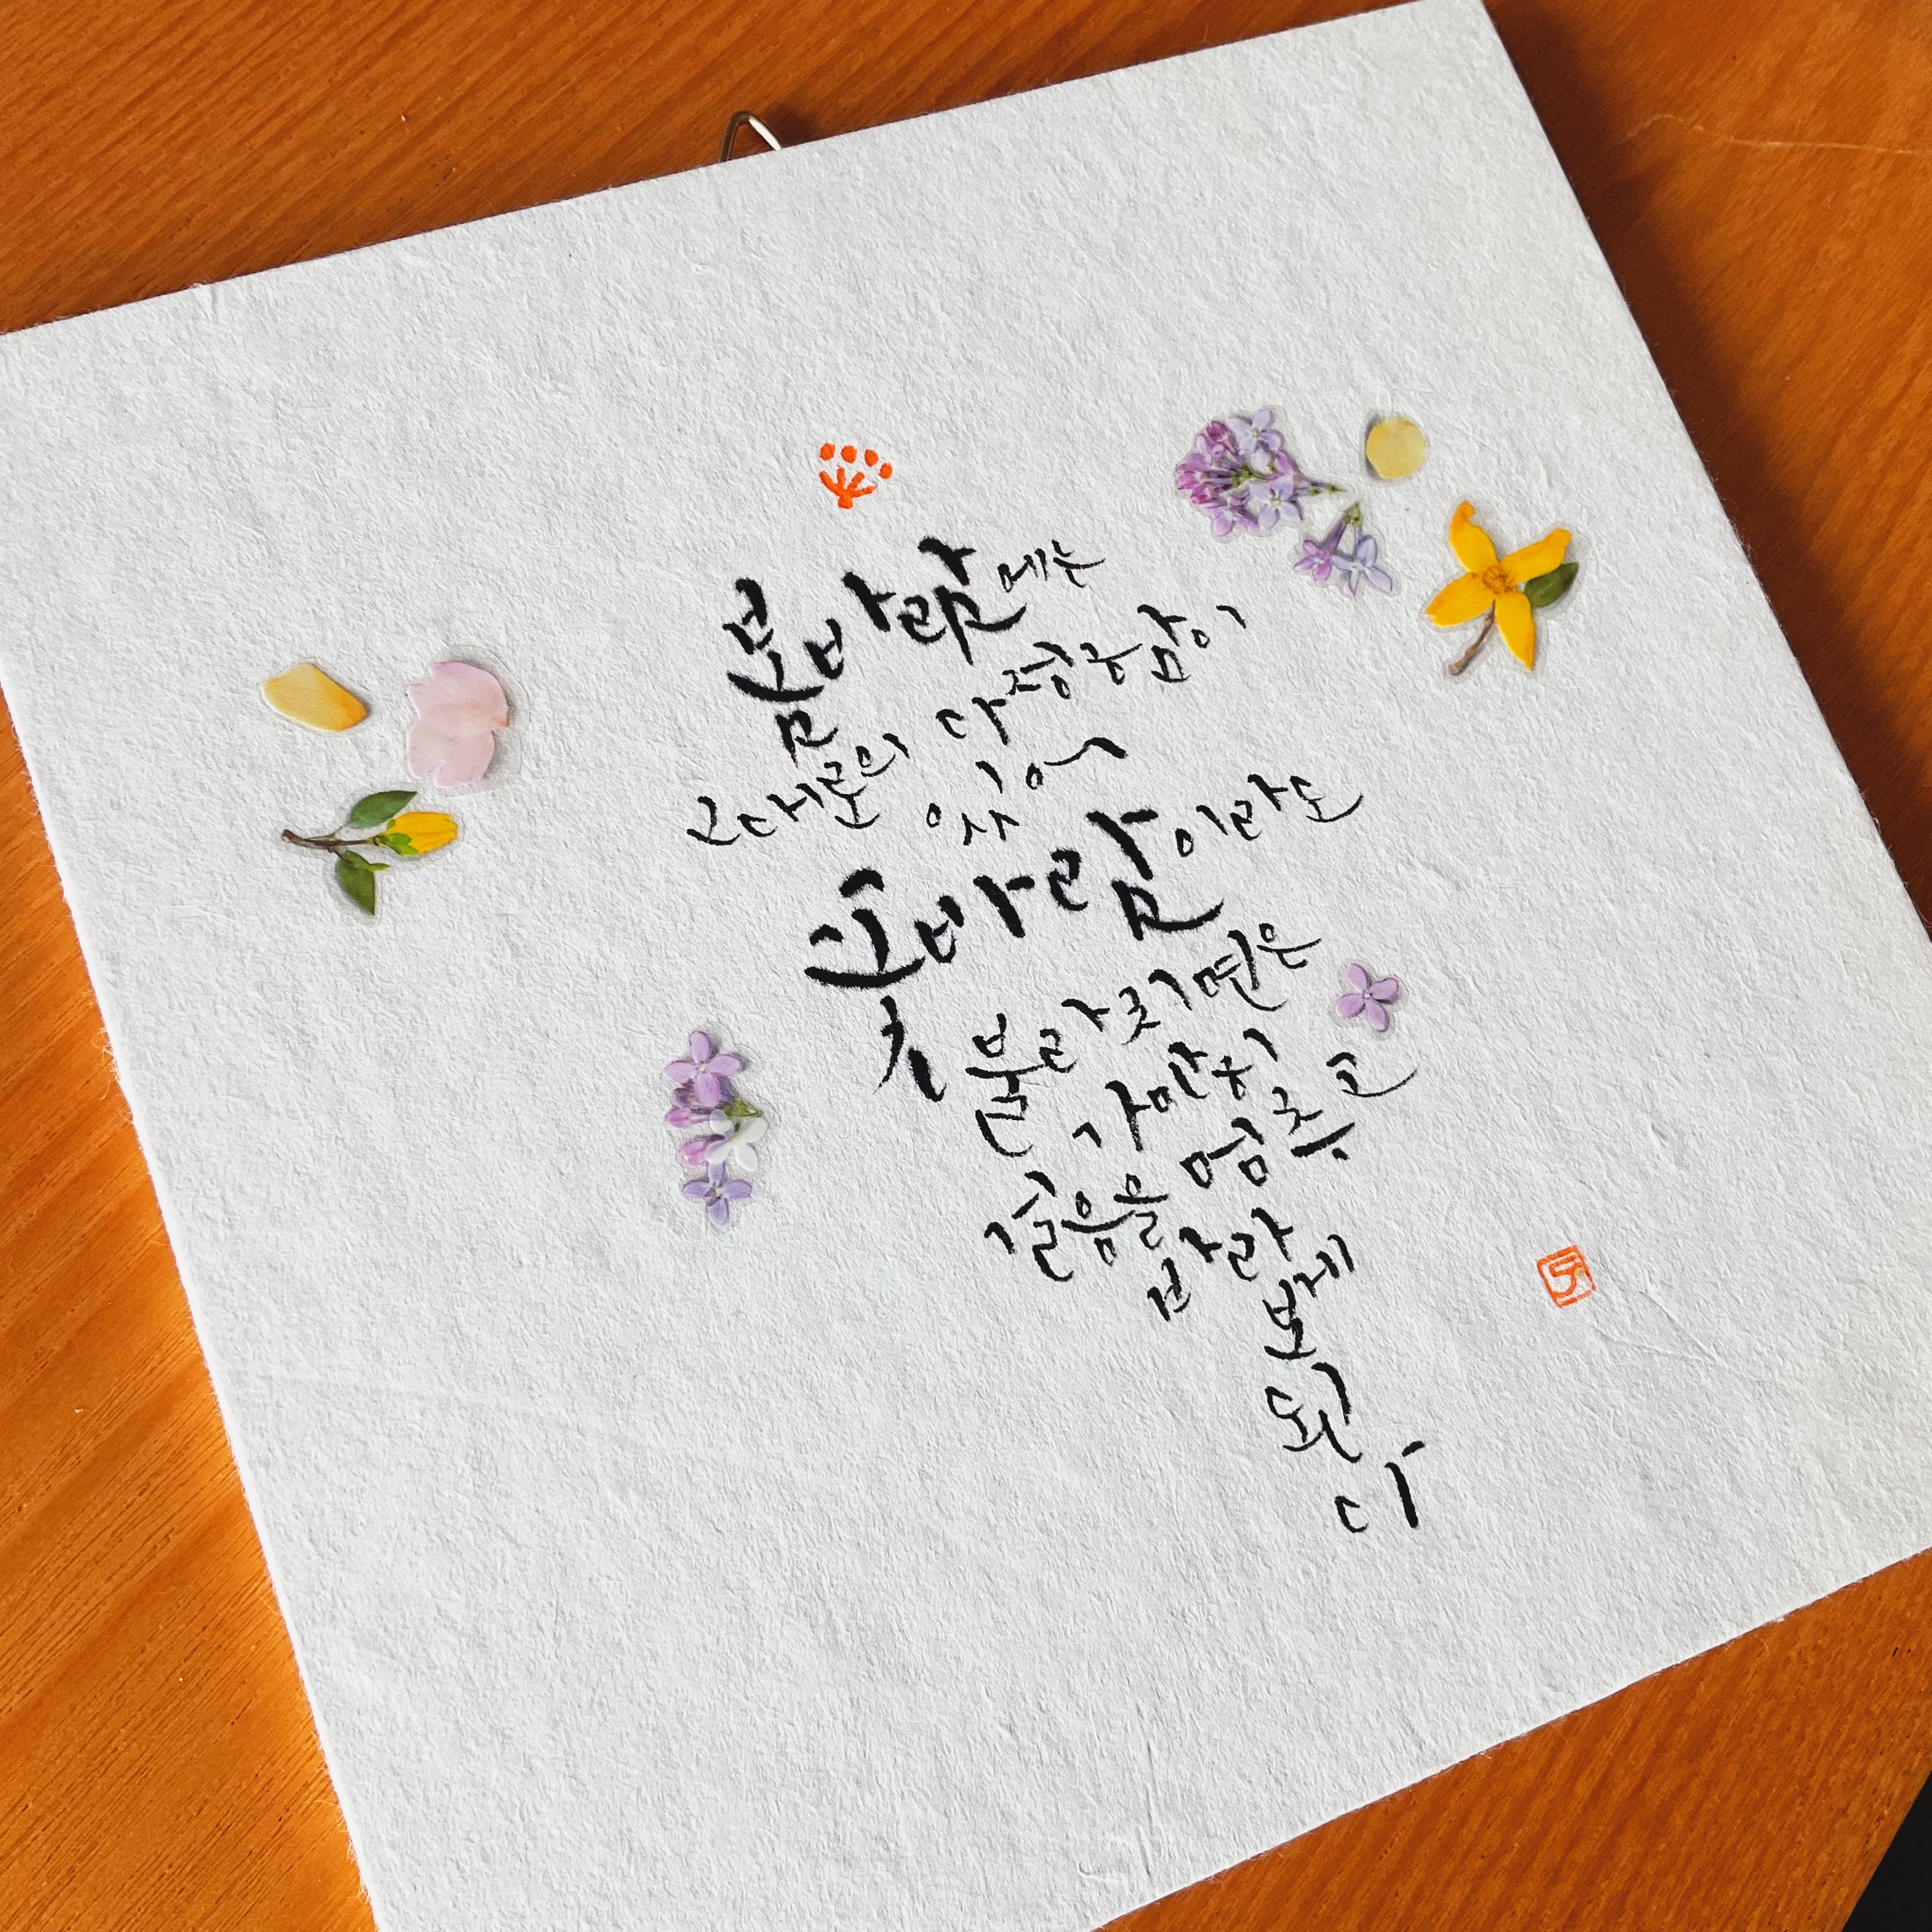 봄바람에는
그대로의
있어
꽃바람이라도
불라치면은
가만히
걸음을 멈추고
바라
보게
된
다